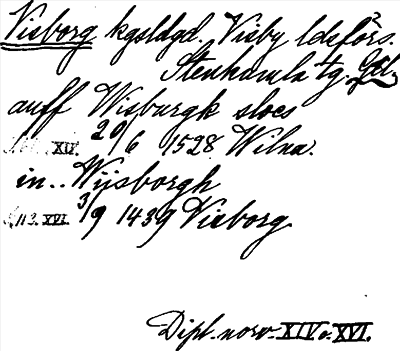 Visborg kgsldgd. Visby ldsförs.
Stenhamla tg. Gtl.
auff Wisburgk sloes
XII. 20/6 1528 Wilna.
in.. Wijsborgh
113. XVI. 3/9 1439 Visborg
Dipl. norv. XII o. XVI.